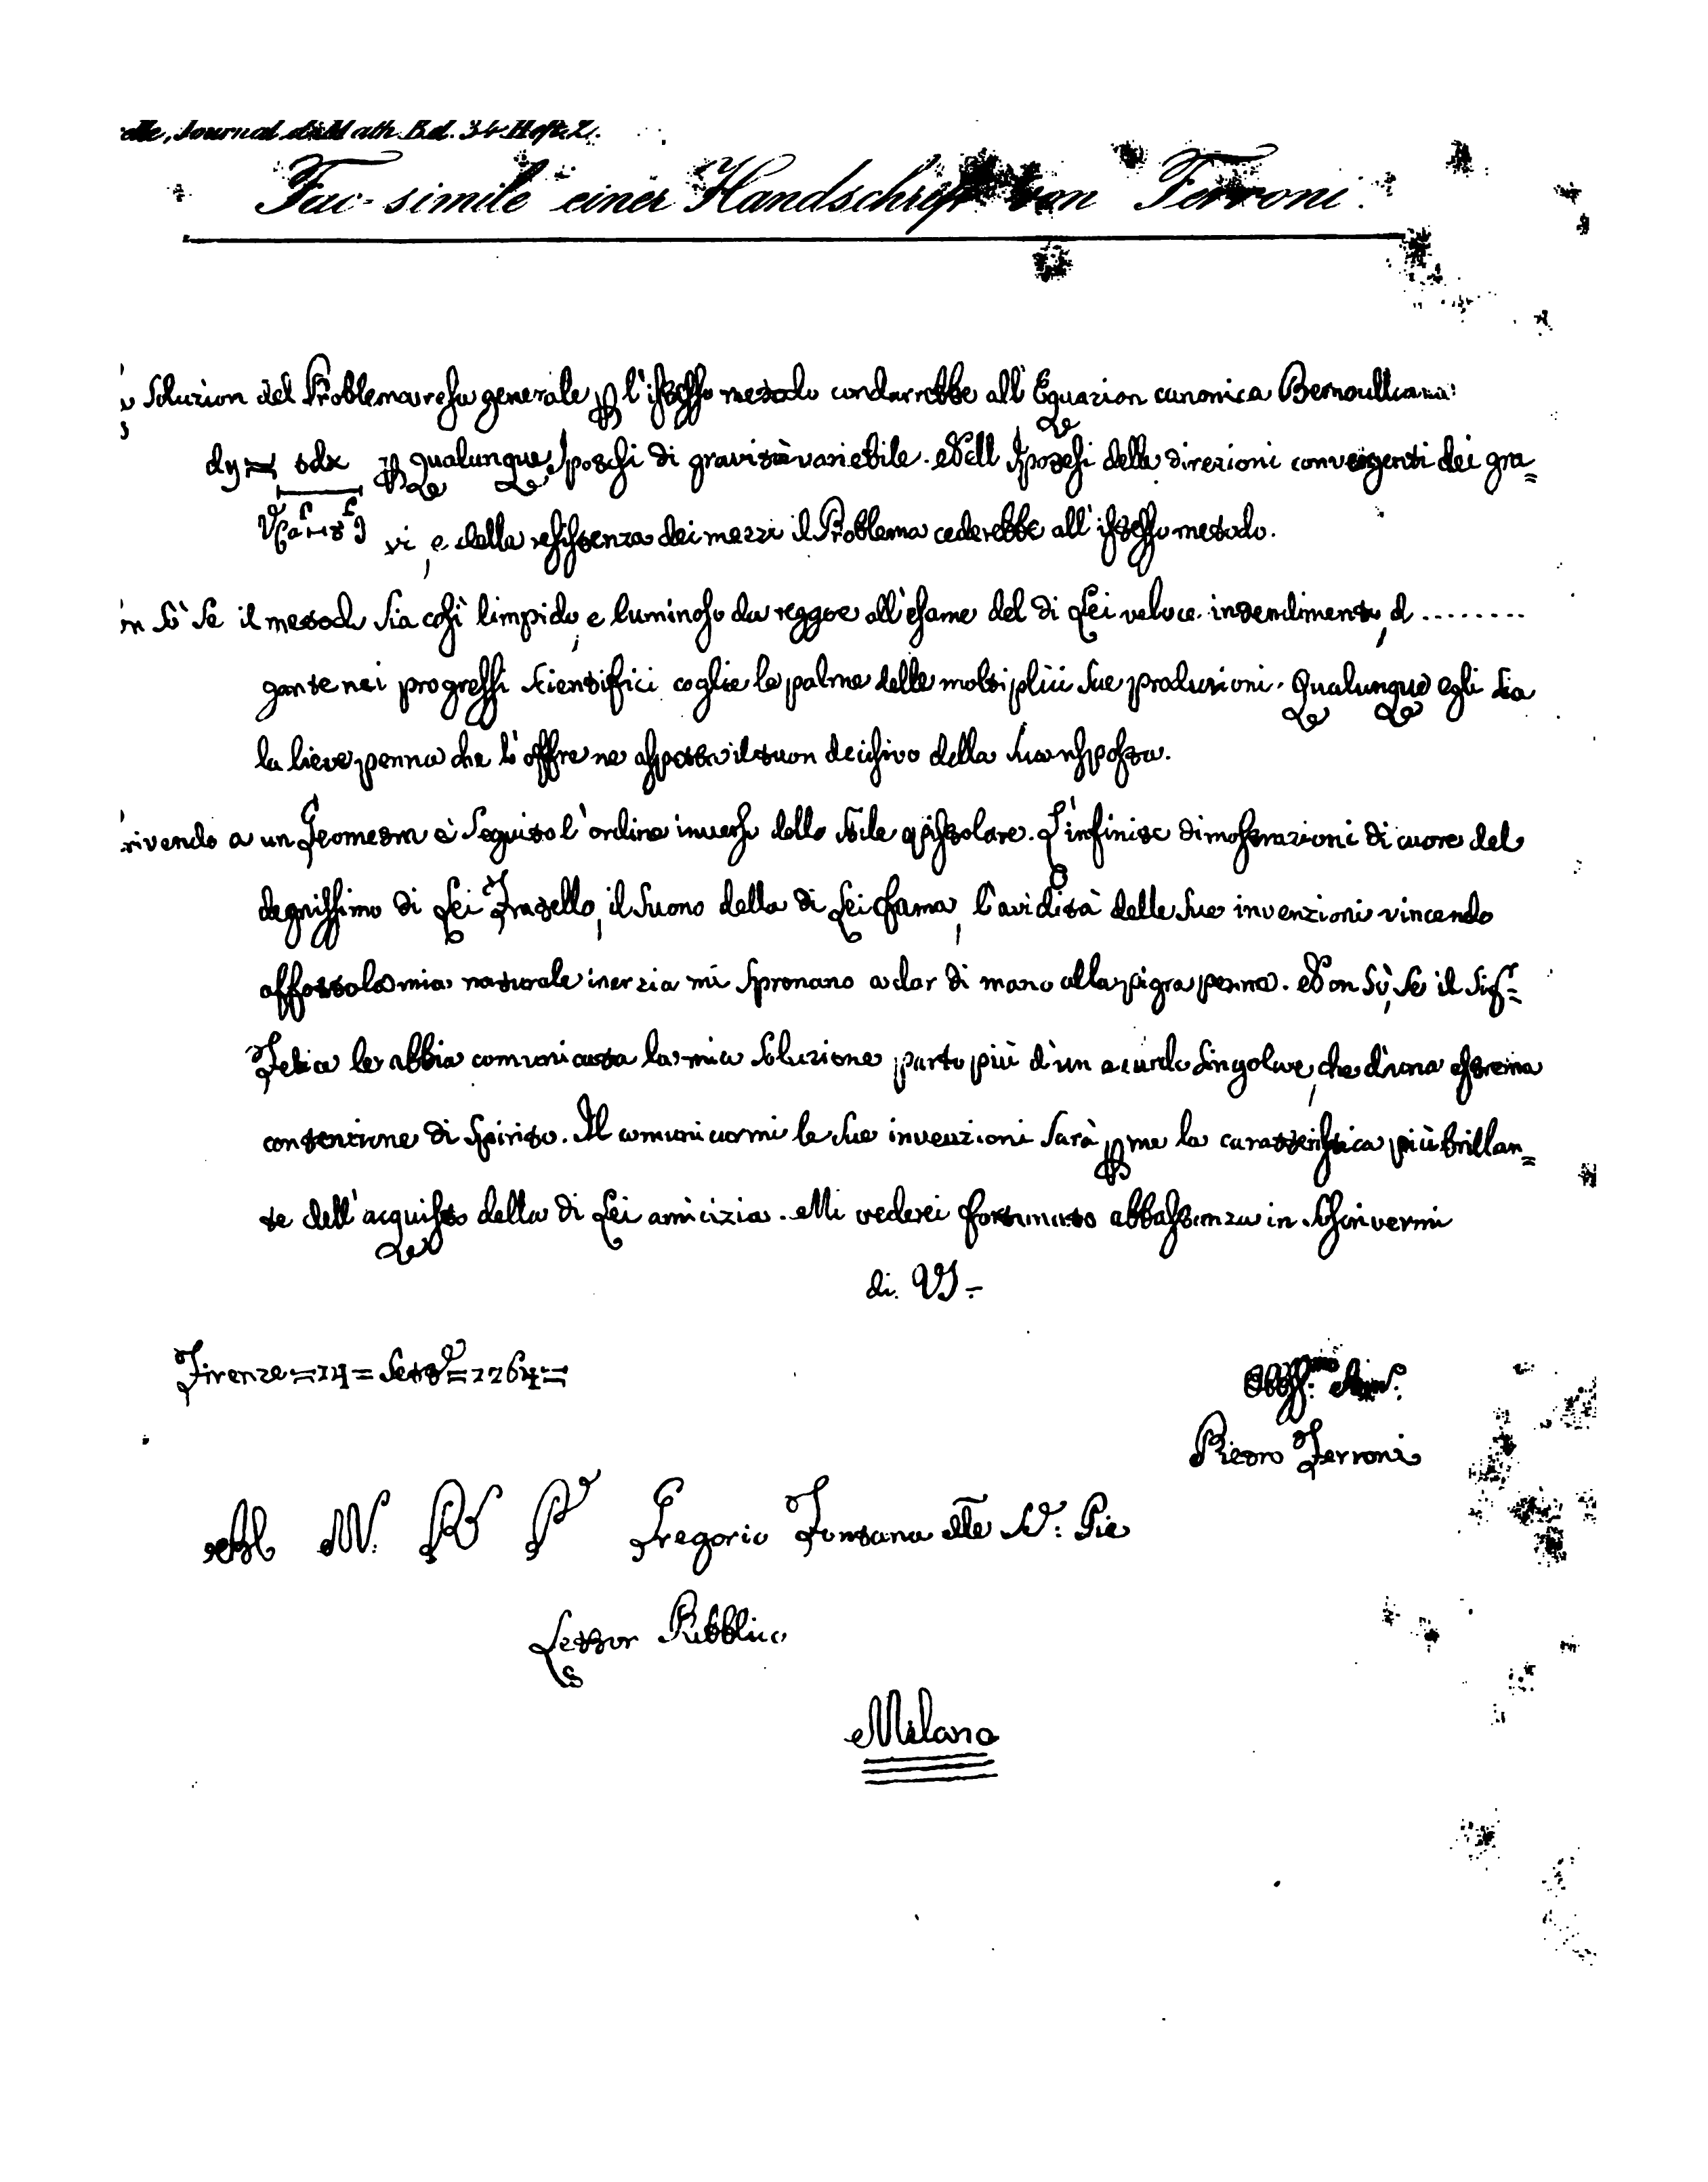 elle, Journal d. Math. Bd. 34 Heft. 2.
Fac-simile einer Handschrift von Ferroni.
Soluzion del Problema resa generale p l'istesso metodo condurrebbe all'Equazion canonica Bernoulliana:
dy = tdx p qualunque Ipotesi di gravità variebile. Nell Ipotesi delle direzioni convergenti dei gra=
√(a t) vi, e della resistenza dei mezzi il Problema cederebbe all'istesso metodo.
n sò se il metodo sia così limpido, e luminoso da reggere all'esame del di Lei veloce intendimento, d ........
gante nei progressi scientifici coglie le palme delle moltiplici sue produzioni. Qualunque egli sia
la lieve penna che l'offre ne aspetta il tuon decisivo della sua risposta.
rivendo a un Geometra è seguito l'ordine inverso dello stile epistolare. L'infinite dimostrazioni di cuore del
degnissimo di Lei Fratello, il suono della di Lei fama, l'avidità delle sue invenzioni vincendo
affatto la mia naturale inerzia mi spronano a dar di mano alla pigra penna. Non sò, se il Sigr
Felice le abbia comunicata la mia soluzione parto più d'un azzardo singolare, che d'una estrema
contenzione di spirito. Il comunicarmi le sue invenzioni sarà p me la caratteristica più brillan=
te dell'acquisto della di Lei amicizia. Mi vederei fortunato abbastanza in scrivermi
di. VS =
Firenze = 14 = Sett = 1764 =
Pietro Ferroni
Al M. R P Gregorio Fontana delle S: Pie
Lettor Pubblico
Milano